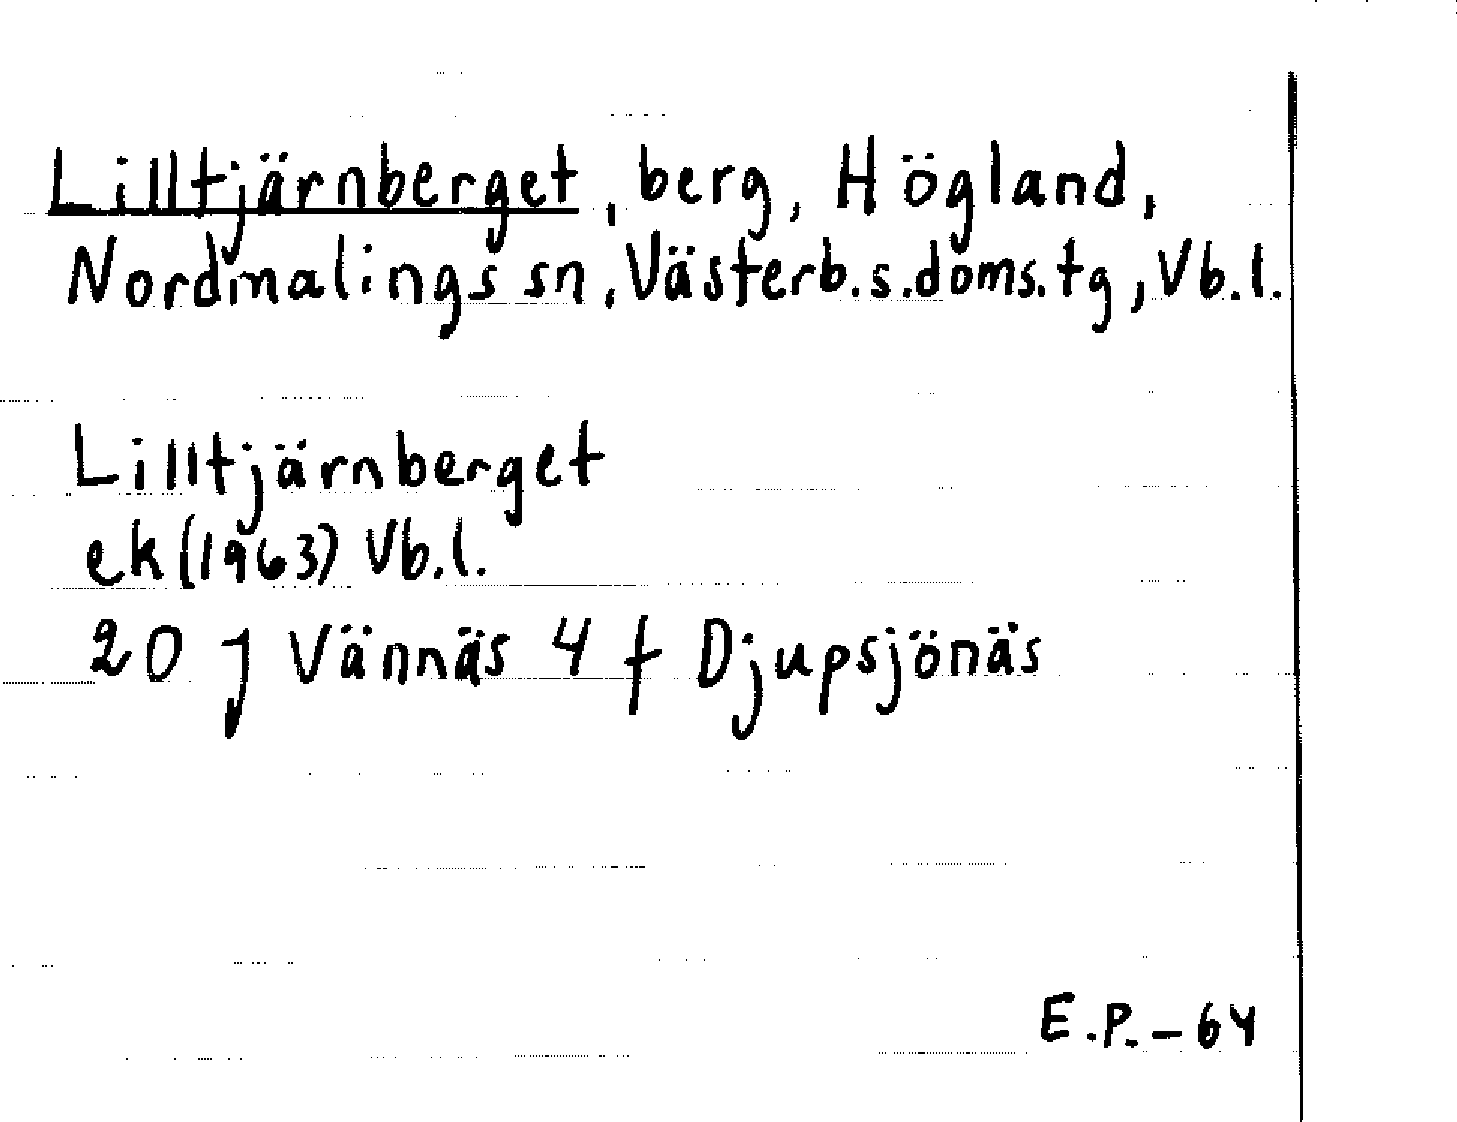 Lilltjärnberget, berg, Högland,
Nordmalings sn, Västerb.s.doms.tg, Vb.l.
Lilltjärnberget
ek (1963) Vb.l.
20 J Vännäs 4 f Djupsjönäs
E.P.-64